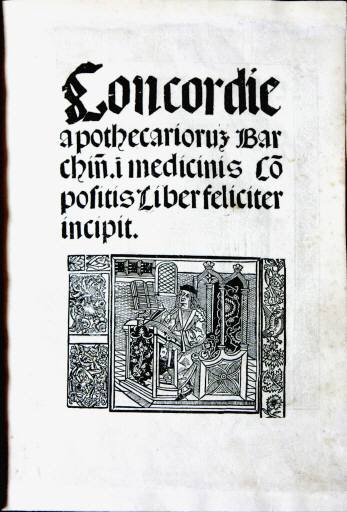 Concordie
apothecarioruꝫ Bar
chiñ. ī medicinis Cõ
positis Liber feliciter
incipit.